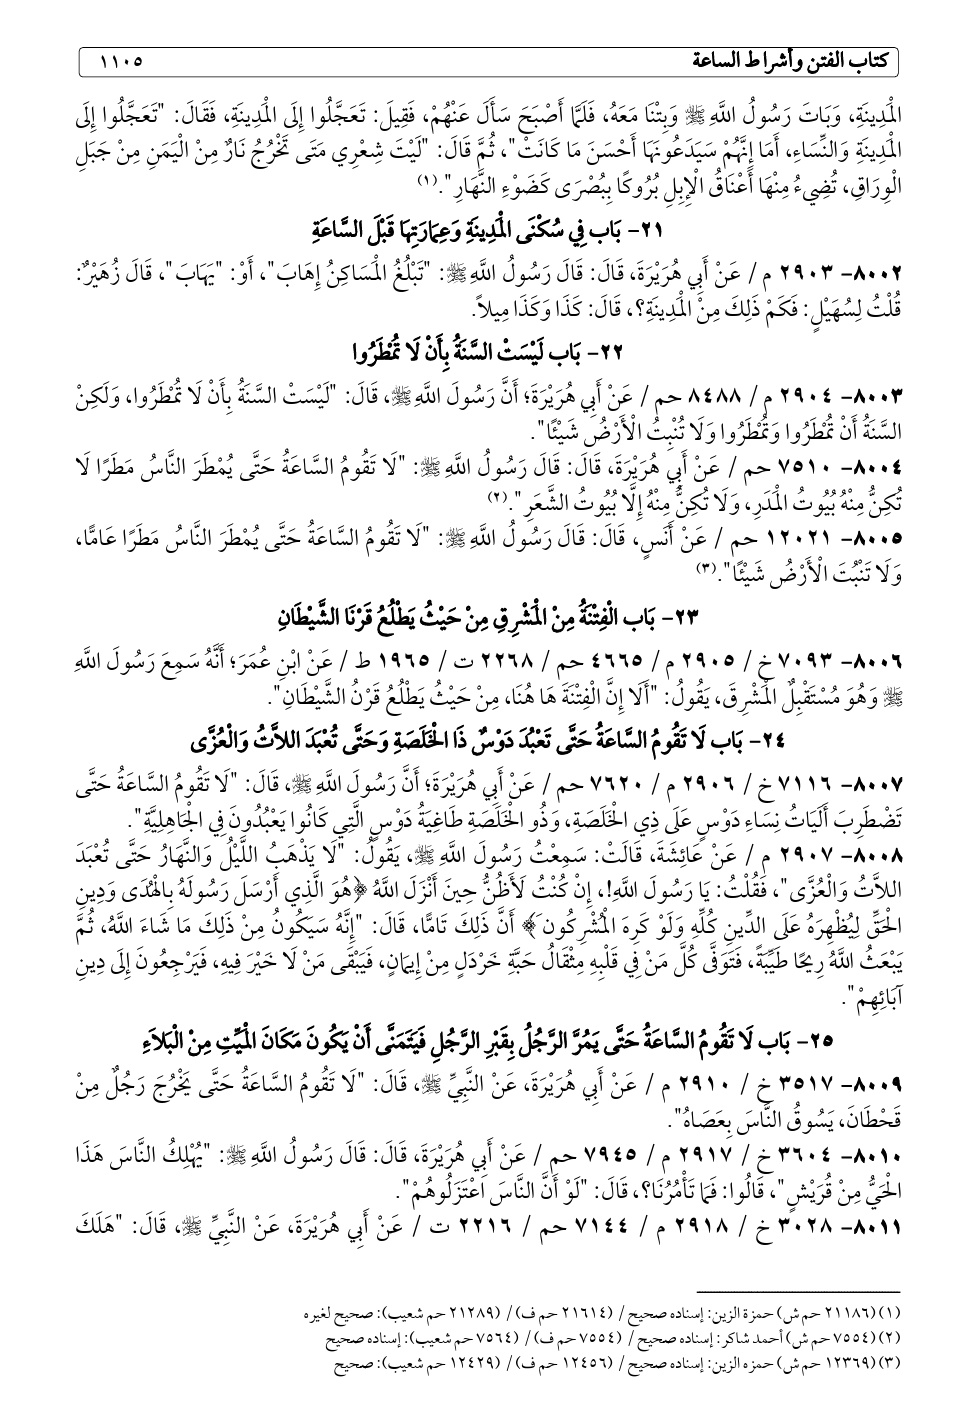 كتاب الفتن وأشراط الساعة ١١٠٥
الْمَدِينَةِ، وَبَاتَ رَسُولُ اللَّهِ ﷺ وَبِتْنَا مَعَهُ، فَلَمَّا أَصْبَحَ سَأَلَ عَنْهُمْ، فَقِيلَ: تَعَجَّلُوا إِلَى الْمَدِينَةِ، فَقَالَ: "تَعَجَّلُوا إِلَى
الْمَدِينَةِ وَالنِّسَاءِ، أَمَا إِنَّهُمْ سَيَدَعُونَهَا أَحْسَنَ مَا كَانَتْ"، ثُمَّ قَالَ: "لَيْتَ شِعْرِي مَتَى تَخْرُجُ نَارٌ مِنْ الْيَمَنِ مِنْ جَبَلِ
الْوِرَاقِ، تُضِيءُ مِنْهَا أَعْنَاقُ الْإِبِلِ بُرُوكًا بِبُصْرَى كَضَوْءِ النَّهَارِ".(١)
٢١- بَاب فِي سُكْنَى الْمَدِينَةِ وَعِمَارَتِهَا قَبْلَ السَّاعَةِ
٨٠٠٢- ٢٩٠٣ م/ عَنْ أَبِي هُرَيْرَةَ، قَالَ: قَالَ رَسُولُ اللَّهِ ﷺ: "تَبْلُغُ الْمَسَاكِنُ إِهَابَ"، أَوْ: "يَهَابَ"، قَالَ زُهَيْرٌ:
قُلْتُ لِسُهَيْلٍ: فَكَمْ ذَلِكَ مِنْ الْمَدِينَةِ؟، قَالَ: كَذَا وَكَذَا مِيلاً.
٢٢- بَاب لَيْسَتْ السَّنَةُ بِأَنْ لَا تُمْطَرُوا
٨٠٠٣- ٢٩٠٤ م/ ٨٤٨٨ حم / عَنْ أَبِي هُرَيْرَةَ؛ أَنَّ رَسُولَ اللَّهِ ﷺ، قَالَ: "لَيْسَتْ السَّنَةُ بِأَنْ لَا تُمْطَرُوا، وَلَكِنْ
السَّنَةُ أَنْ تُمْطَرُوا وَتُمْطَرُوا وَلَا تُنْبِتُ الْأَرْضُ شَيْئًا".
٨٠٠٤- ٧٥١٠ حم / عَنْ أَبِي هُرَيْرَةَ، قَالَ: قَالَ رَسُولُ اللَّهِ ﷺ: "لَا تَقُومُ السَّاعَةُ حَتَّى يُمْطَرَ النَّاسُ مَطَرًا لَا
تُكِنُّ مِنْهُ بُيُوتُ الْمَدَرِ، وَلَا تُكِنُّ مِنْهُ إِلَّا بُيُوتُ الشَّعَرِ".(٢)
٨٠٠٥- ١٢٠٢١ حم / عَنْ أَنَسٍ، قَالَ: قَالَ رَسُولُ اللَّهِ ﷺ: "لَا تَقُومُ السَّاعَةُ حَتَّى يُمْطَرَ النَّاسُ مَطَرًا عَامًّا،
وَلَا تَنْبُتَ الْأَرْضُ شَيْئًا".(٣)
٢٣- بَاب الْفِتْنَةُ مِنْ الْمَشْرِقِ مِنْ حَيْثُ يَطْلُعُ قَرْنَا الشَّيْطَانِ
٨٠٠٦- ٧٠٩٣ خ/ ٢٩٠٥ م/ ٤٦٦٥ حم/ ٢٢٦٨ ت/ ١٩٦٥ ط / عَنْ ابْنِ عُمَرَ؛ أَنَّهُ سَمِعَ رَسُولَ اللَّهِ
ﷺ وَهُوَ مُسْتَقْبِلٌ الْمَشْرِقَ، يَقُولُ: "أَلَا إِنَّ الْفِتْنَةَ هَا هُنَا، مِنْ حَيْثُ يَطْلُعُ قَرْنُ الشَّيْطَانِ".
٢٤- بَاب لَا تَقُومُ السَّاعَةُ حَتَّى تَعْبُدَ دَوْسٌ ذَا الْخَلَصَةِ وَحَتَّى تُعْبَدَ اللاَّتُ وَالْعُزَّى
٨٠٠٧- ٧١١٦ خ/ ٢٩٠٦ م / ٧٦٢٠ حم / عَنْ أَبِي هُرَيْرَةَ؛ أَنَّ رَسُولَ اللَّهِ ﷺ، قَالَ: "لَا تَقُومُ السَّاعَةُ حَتَّى
تَضْطَرِبَ أَلَيَاتُ نِسَاءِ دَوْسٍ عَلَى ذِي الْخَلَصَةِ، وَذُو الْخَلَصَةِ طَاغِيَةُ دَوْسٍ الَّتِي كَانُوا يَعْبُدُونَ فِي الْجَاهِلِيَّةِ".
٨٠٠٨- ٢٩٠٧ م / عَنْ عَائِشَةَ، قَالَتْ: سَمِعْتُ رَسُولَ اللَّهِ ﷺ، يَقُولُ: "لَا يَذْهَبُ اللَّيْلُ وَالنَّهَارُ حَتَّى تُعْبَدَ
اللاَّتُ وَالْعُزَّى"، فَقُلْتُ: يَا رَسُولَ اللَّهِ!، إِنْ كُنْتُ لَأَظُنُّ حِينَ أَنْزَلَ اللَّهُ ﴿هُوَ الَّذِي أَرْسَلَ رَسُولَهُ بِالْهُدَى وَدِينِ
الْحَقِّ لِيُظْهِرَهُ عَلَى الدِّينِ كُلِّهِ وَلَوْ كَرِهَ الْمُشْرِكُونَ﴾ أَنَّ ذَلِكَ تَامًّا، قَالَ: "إِنَّهُ سَيَكُونُ مِنْ ذَلِكَ مَا شَاءَ اللَّهُ، ثُمَّ
يَبْعَثُ اللَّهُ رِيحًا طَيِّبَةً، فَتَوَفَّى كُلَّ مَنْ فِي قَلْبِهِ مِثْقَالُ حَبَّةِ خَرْدَلٍ مِنْ إِيمَانٍ، فَيَبْقَى مَنْ لَا خَيْرَ فِيهِ، فَيَرْجِعُونَ إِلَى دِينِ
آبَائِهِمْ".
٢٥- بَاب لَا تَقُومُ السَّاعَةُ حَتَّى يَمُرَّ الرَّجُلُ بِقَبْرِ الرَّجُلِ فَيَتَمَنَّى أَنْ يَكُونَ مَكَانَ الْمَيِّتِ مِنْ الْبَلَاَءِ
٨٠٠٩- ٣٥١٧ خ / ٢٩١٠ م / عَنْ أَبِي هُرَيْرَةَ، عَنْ النَّبِيِّ ﷺ، قَالَ: "لَا تَقُومُ السَّاعَةُ حَتَّى يَخْرُجَ رَجُلٌ مِنْ
قَحْطَانَ، يَسُوقُ النَّاسَ بِعَصَاهُ".
٨٠١٠- ٣٦٠٤ خ / ٢٩١٧ م/ ٧٩٤٥ حم/ عَنْ أَبِي هُرَيْرَةَ، قَالَ: قَالَ رَسُولُ اللَّهِ ﷺ: "يُهْلِكُ النَّاسَ هَذَا
الْحَيُّ مِنْ قُرَيْشٍ"، قَالُوا: فَمَا تَأْمُرُنَا؟، قَالَ: "لَوْ أَنَّ النَّاسَ اعْتَزَلُوهُمْ".
٨٠١١- ٣٠٢٨ خ / ٢٩١٨ م/ ٧١٤٤ حم/ ٢٢١٦ ت / عَنْ أَبِي هُرَيْرَةَ، عَنْ النَّبِيِّ ﷺ، قَالَ: "هَلَكَ
(١) (٢١١٨٦ حم ش) حمزة الزين: إسناده صحيح/ (٢١٦١٤ حم ف)/ (٢١٢٨٩ حم شعيب): صحيح لغيره
(٢) (٧٥٥٤ حم ش) أحمد شاكر: إسناده صحيح/ (٧٥٥٤ حم ف)/ (٧٥٦٤ حم شعيب): إسناده صحيح
(٣) (١٢٣٦٩ حم ش) حمزه الزين: إسناده صحيح/ (١٢٤٥٦ حم ف)/ (١٢٤٢٩ حم شعيب): صحيح